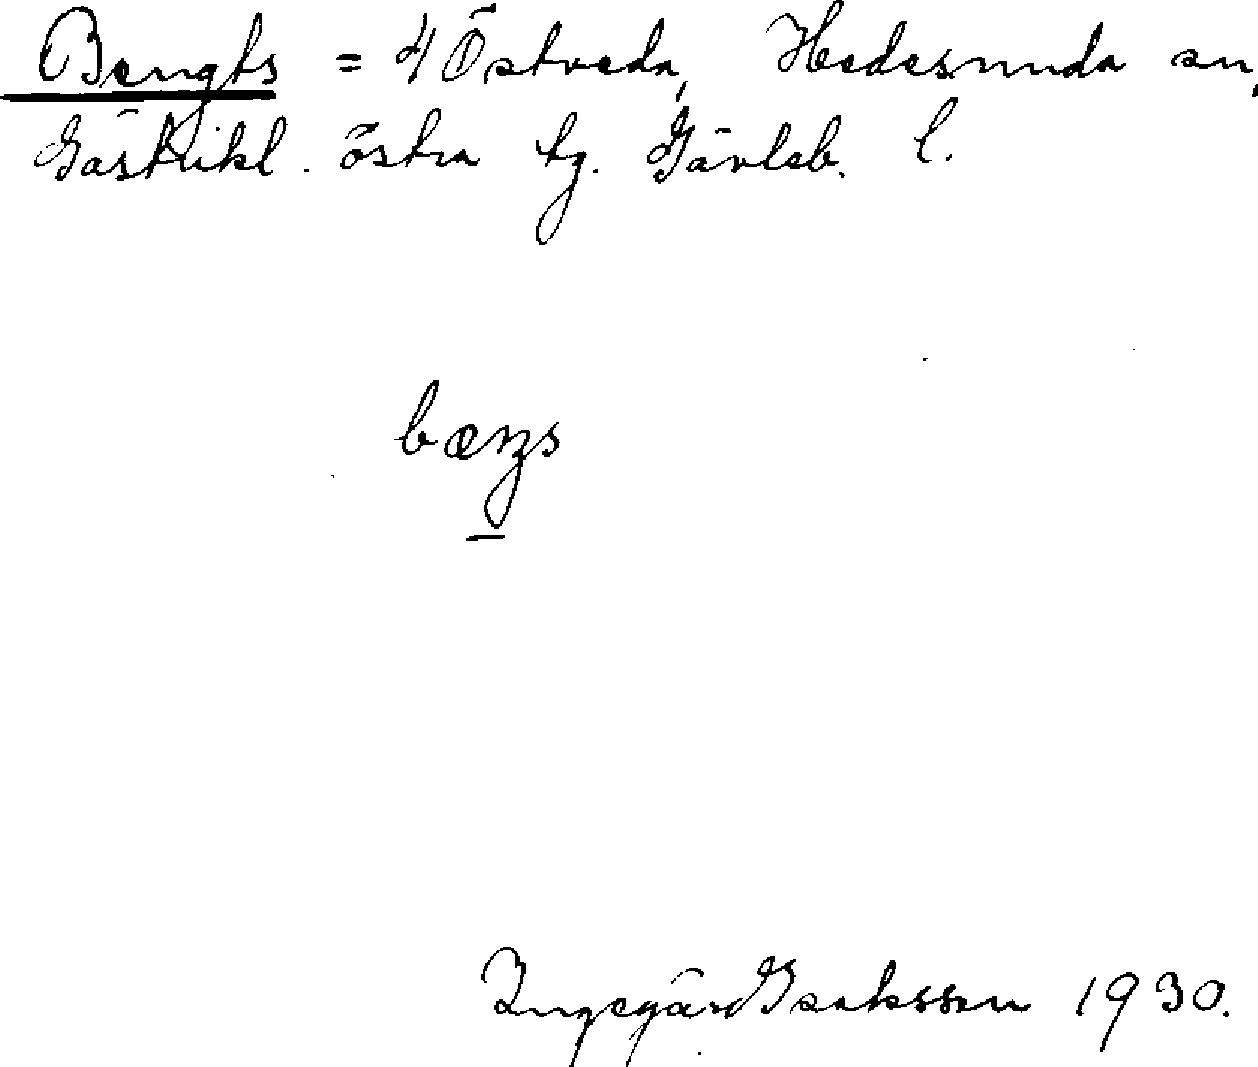 Bengts = 4 Östveda, Hedesunda sn,
Gästrikl. östra tg. Gävleb. l.
Ingegärd Isaksson 1930.